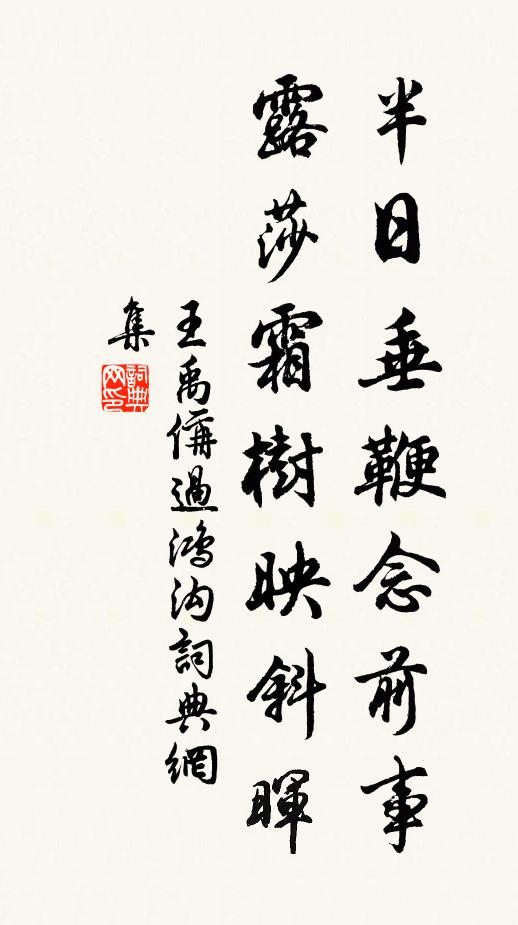 半日垂鞭念前事
露莎霜樹映斜暉
王禹偁過鴻沟詞典網
集
詞典
网印